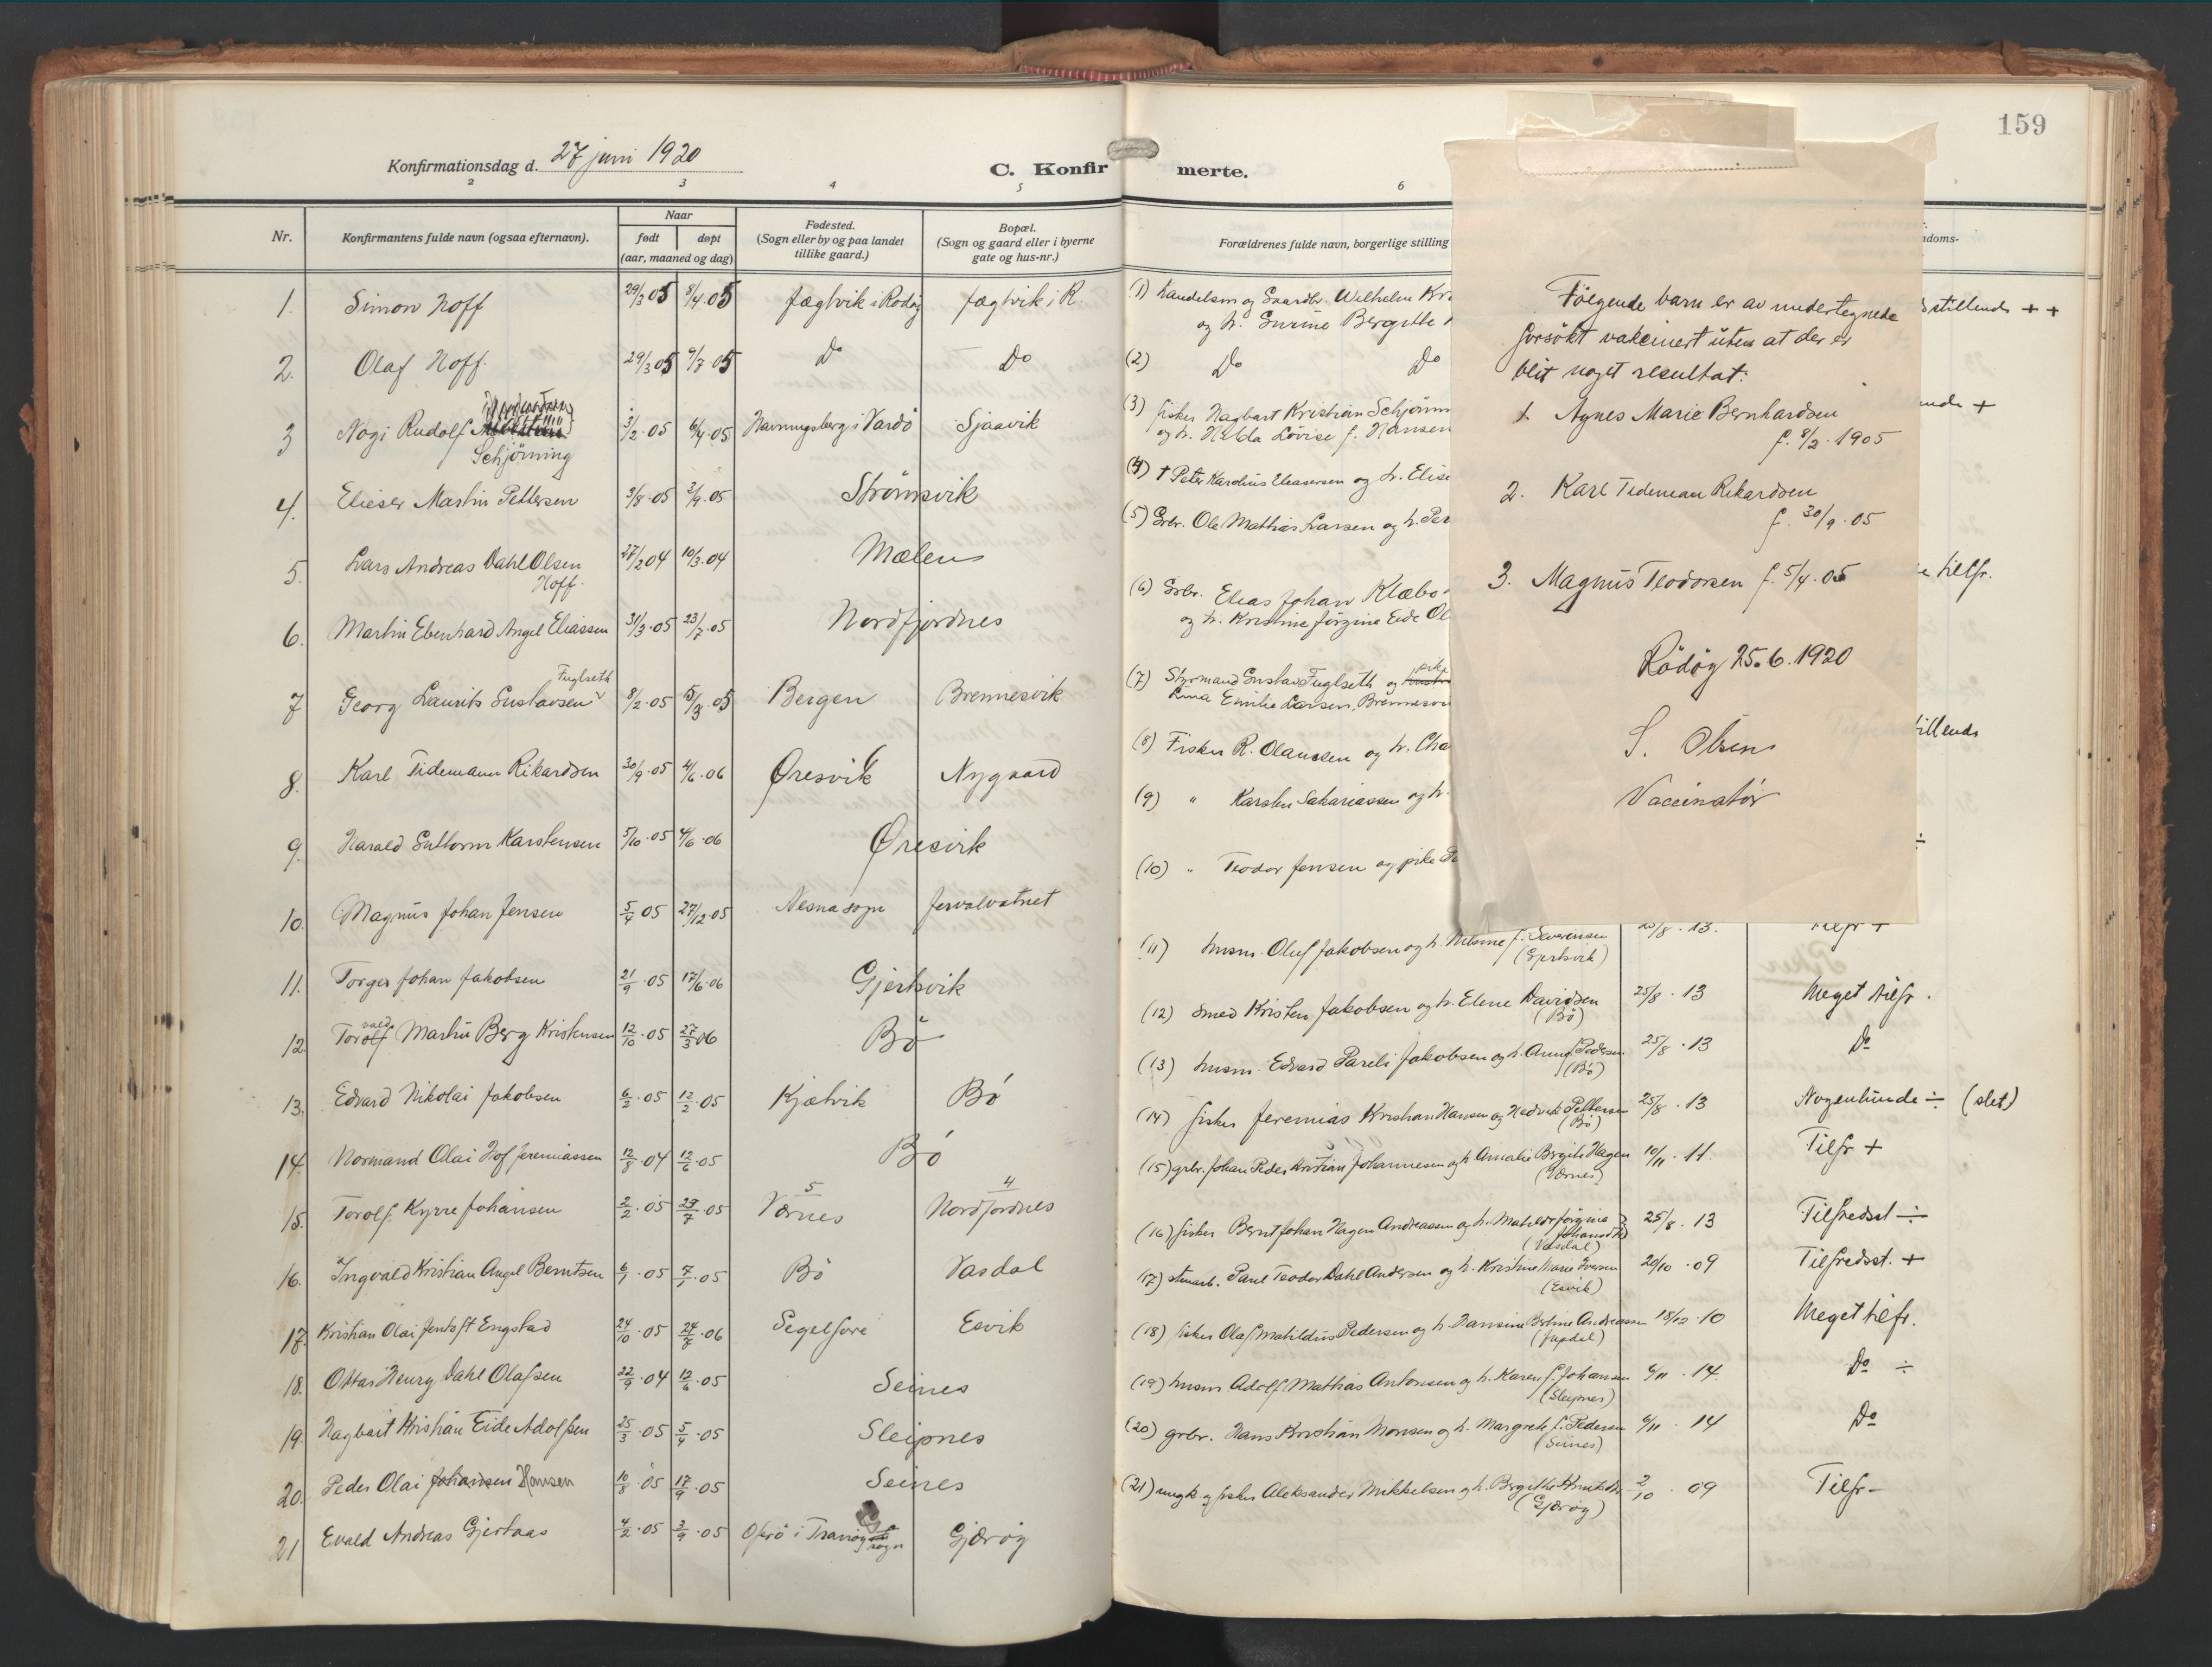 159
Konfirmationsdag d. 27 juni 1920
C. Konfirmerte.
2 3 4 5 6
Nr.
Konfirmantens fulde navn (ogsaa efternavn).
Naar
født døpt
(aar, maaned og dag)
Fødested.
(Sogn eller by og paa landet
tillike gaard.)
Bopæl.
(Sogn og gaard eller i byerne
gate og hus-nr.)
Forældrenes fulde navn, borgerlige stilling
1. Simon Hoff 29/3 05 9/7.05 Jægtvik i Rødøy Jægtvik i R.
2. Olaf Hoff. 29/3 05 9/7 05 Do Do
3 Nogi Rudolf
Schjøning
3/2.05 6/4.05 Havningsberg i Vardö Sjaavik
4. Elieser Martin Pettersen 3/8.05 3/9.05 Strömsvik
5. Lars Andreas Dahl Olsen
Hoff.
27/2 04 10/3.04 Mælen
6. Martin Ebenhard Angel Eliassen 31/3.05 23/7.05 Nordfjordnes
Fuglseth
7 Georg Laurits Gustavsen 8/2.05 15/3.05 Bergen Brennesvik
8. Karl Tidemann Rikardsen 30/9.05 4/6.06 Øresvik Nygaard
9. Harald Guttorm Karstensen 5/10.05 4/6.06 Øresvik
10. Magnus Johan Jensen 5/4 05 27/12.05 Nesna sogn
11. Torger Johan Jakobsen 21/9.05 17/6.06 Gjersvik
vald
12. Torolf Martin Berg Kristensen 12/10.05 27/3 06 Bö
13. Edvard Nikolai Jakobsen 6/2.05 12/2.05 Kjælvik Bö
14. Normand Olai Hof Jeremiassen 12/8.04 12/6.05 Bö
5 4
15. Torolf Kyrre Johansen 2/2.05 23/7.05 Værnes Nordfjordnes
16. Ingvald Kristian Angel Berntsen 6/1.05 7/1.05 Bö Vasdal
17. Kristian Olai Jentoft Engstad 24/10.05 24/6.06 Segelfore Esvik
18. Ottar Henry Dahl Olafsen 22/9.04 12/6.05 Seines
19. Hagbart Kristian Eide Adolfsen 25/3.05 5/4.05 Sleipnes
20. Peder Olai Johansen Hansen 10/8.05 17/9.05 Seines
21 Evald Andreas Gjertsas 4/2.05 3/9.05 i Tranöy sogn Gjerøy
(1) Handelsm og Gaardbr. Wilhelm
og h. Surine Bergitte
(2) Do Do
(3) fisker Hagbart Kristian Schjønn
og h. Hilda Lovise f. Hansen
(4) † Peter Karolius Eleasersen og h. Elise
(5) Grbr. Ole Mathias Larsen og h.
(6) Grbr. Elias Johan Klæbo
og h. Kristine Jørgine Eide Ol
pike
(7) Styrmand Gustav Fuglseth og hustru
Lina Emilie Larsen, Brennesv
(8) Fisker R. Olaussen og h. Cha
(9) " Karsten Sakariassen og h.
(10) " Teodor Jensen og pike
(11) husm. Oluf Jakobsen og h. Nilsine f. Severinsen
(Gjersvik)
25/8.13. Tilfr +
(12) Smed Kristen Jakobsen og h. Elene Davidsen
(Bö)
25/8.13 Meget tilfr.
(13) husm. Edvard Pareli Jakobsen og h. Anna Pedersen
(Bö)
25/8.13 Do
(14) fisker Jeremias Kristian Hansen og Hedvik Pettersen
(Bö)
25/8.13 Nogenlunde ÷ (slet)
(15) grbr. Johan Peder Kristian Johannesen og h. Amalie Birgitte Hagen
(Værnes)
10/11.11. Tilfr +
(16) fisker Bernt Johan Hagen Andreassen og h. Mathilde Jörgine Johansdtr
(Vasdal)
25/8.13 Tilfredsst ÷
(17) stenarb. Paul Teodor Dahl Andersen og h. Kristine Marie Iversen
(Esvik)
20/10.09 Tilfredsst. +
(18) fisker Olaf Mathildus Pedersen og h. Hansine Andreassen
18/10.10 Meget tilfr.
(19) husm Adolf Mathias Antonsen og h. Karen f. Johansen
(Sleipnes)
6/11.14 Do ÷
(20) grbr. Hans Kristian Monsen og h. Margrete f. Pedersen
(Seines)
6/11.14 Do
(21) ungk og fisker Aleksander Mikkelsen og h. Bergitte
(Gjerøy)
2/10.09 Tilfr-
ndoms-
stillende + +
nde +
tilfr.
tillende
Følgende barn er av undertegnede
forsökt vakcinert uten at der er
blit noget resultat:
1. Agnes Marie Bernhardsen
f. 8/2.1905
2. Karl Tedeman Rikardsen
f. 30/9.05
3. Magnus Teodorsen f. 5/4.05
Rödöy 25.6.1920
S. Olsen
Vaccinatør